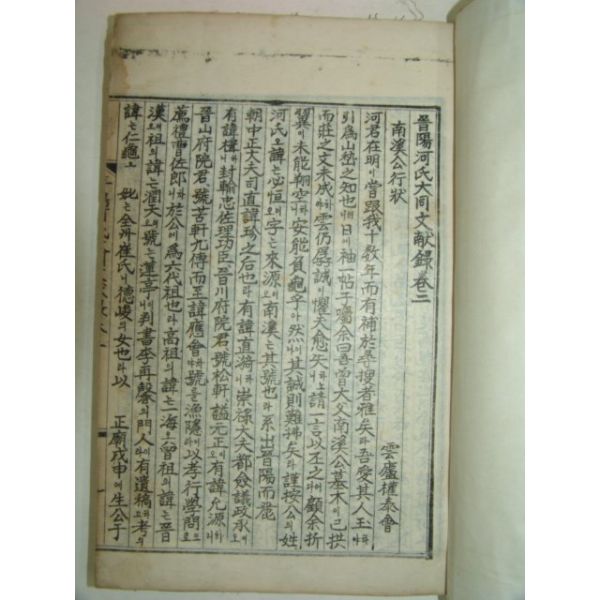 晉陽河氏大同文獻錄卷二
南溪公行狀
雲廬權泰會
河君在明이嘗跟我十數年而有補於尋搜者雅矣라吾愛其人玉하야
引爲山嶅之知也러니日에袖一帖子囑余曰吾曾大父南溪公墓木이已拱
而莊之文未成하야雲仍孱誠이懼天愈矣니請一言以丕之하라顧余折
翼이未能翔空이니安能負龜乎아然이나其誠則難拂矣라謹按公의姓
河氏오諱는必恒이오字는來源이오南溪는其號也라系出晉陽而麗
朝中正大夫司直諱珍之后也라有諱直漪하니崇祿大夫都僉議政丞이오
有諱楫하니封輸忠佐理功臣晉川府院君號松軒諡元正이오有諱允源하니
晉山府院君號苦軒이오九傳而至諱應會하야號를漁隱이라하고以孝行學問으로
薦禮曹佐郎하니於公에爲六代祖也라高祖의諱는一海오曾祖의諱는晉
漢이오祖의諱는潤天이오號는蓮亭이니判書李再馨의門人이라有遺稿하고考의
諱는仁龜오妣는全州崔氏니德峻의女也라以正廟戊申에生公于